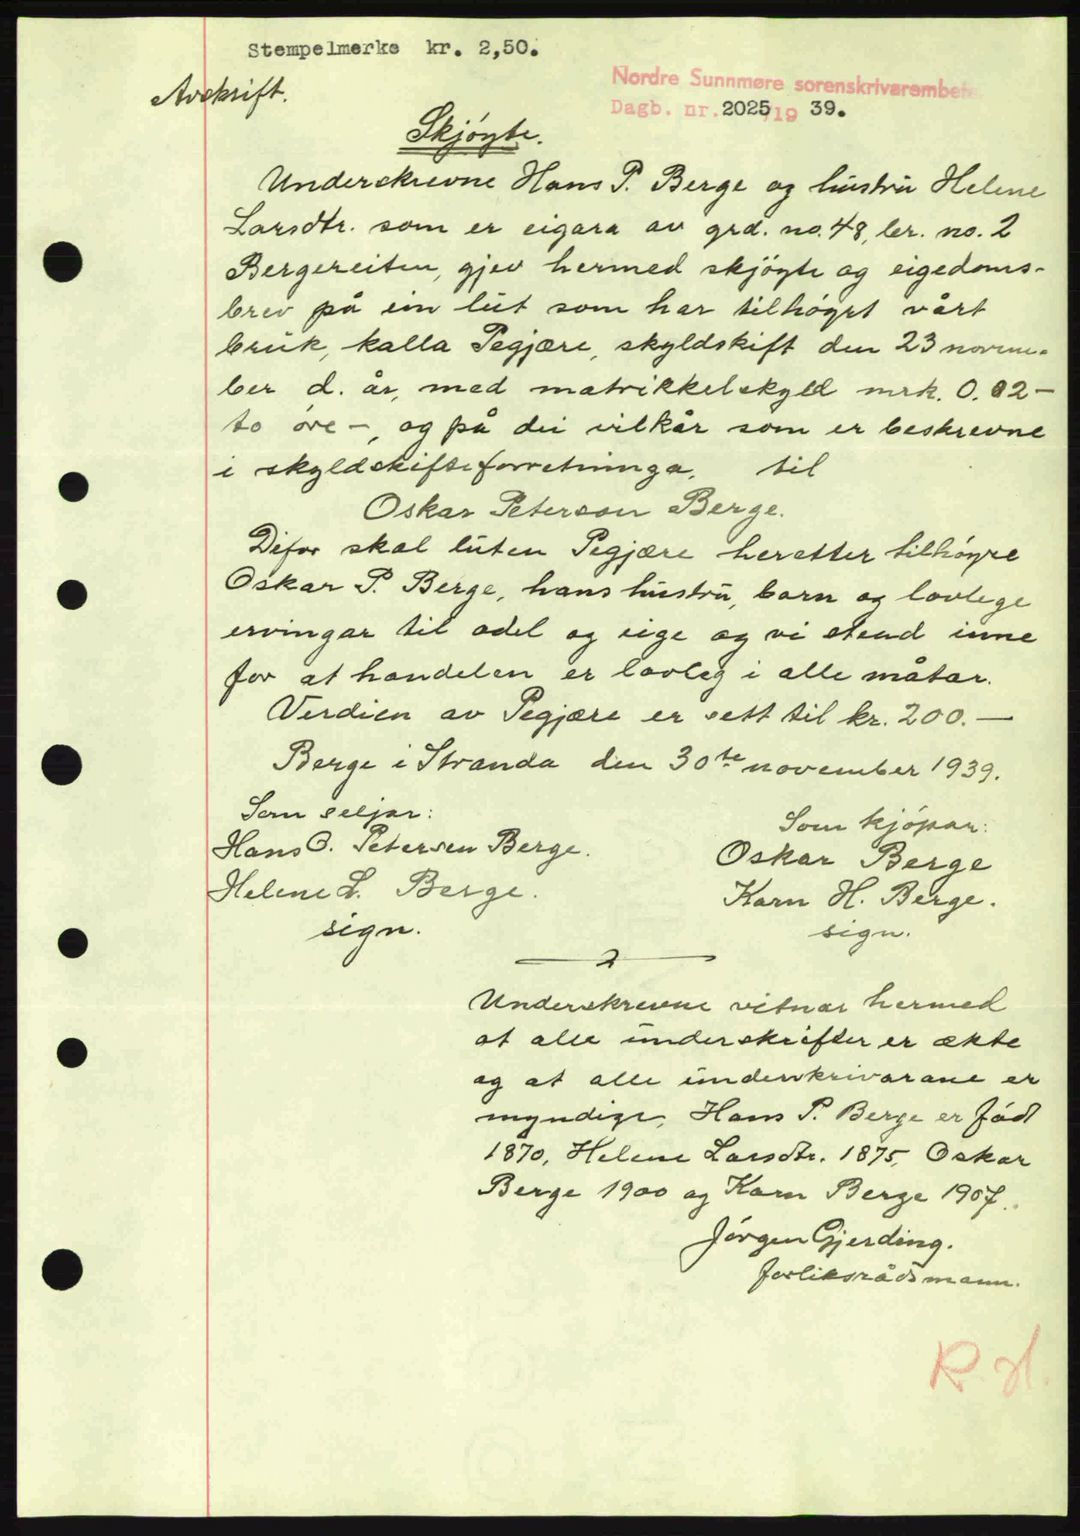 Stempelmerke kr. 2,50.
Nordre Sunnmøre sorenskrivarembe
Dagb. nr. 2025/19 39.
Avskrift.
Skjöyte.
Underskrevne Hans P. Berge og hustru Helene
Larsdtr. som er eigara av grd. no. 48, br. no. 2
Bergereiten, gjev hermed skjöyte og eigedoms-
brev på ein lut som har tilhöyrt vårt
bruk, kalla Pegjære, skyldskift den 23 novem-
ber d. år, med matrikkelskyld mrk. 0.02 -
to öre -, og på dei vilkår som er beskrevne
i skyldskifteforretninga, til
Oskar Peterson Berge.
Difor skal luten Pegjære heretter tilhöyre
Oskar P. Berge, hans hustru, born og lovlege
ervingar til odel og eige og vi stend inne
for at handelen er lovleg i alle måtar.
Verdien av Pegjære er sett til kr. 200. —
Berge i Stranda den 30te november 1939.
Som seljar:
Hans P. Petersen Berge.
Helene L. Berge.
sign.
Som kjöpar:
Oskar Berge
Karn H. Berge.
sign.
Underskrevne vitnar hermed
at alle underskrifter er ækte
og at alle underskrivarane er
myndige, Hans P. Berge er föd
1870, Helene Larsdtr. 1875, Oskar
Berge 1900 og Karn Berge 1907.
Jörgen Gjerding.
forliksrådsmann.